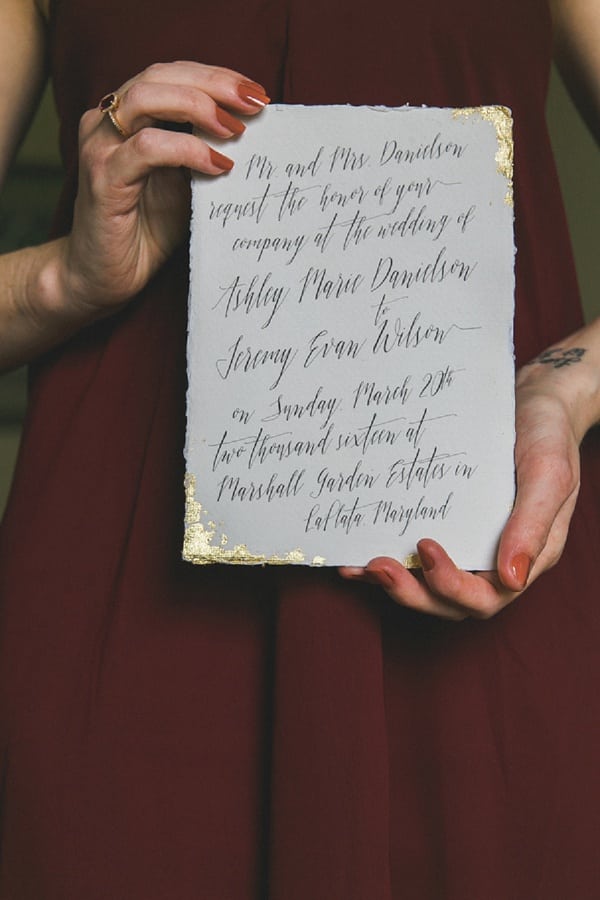 Mr. and Mrs. Danielson
request the honor of your
company at the wedding of
Ashley Marie Danielson
to
Jeremy Evan Wilson
on Sunday, March 20th
two thousand sixteen at
Marshall Garden Estates in
LaPlata, Maryland